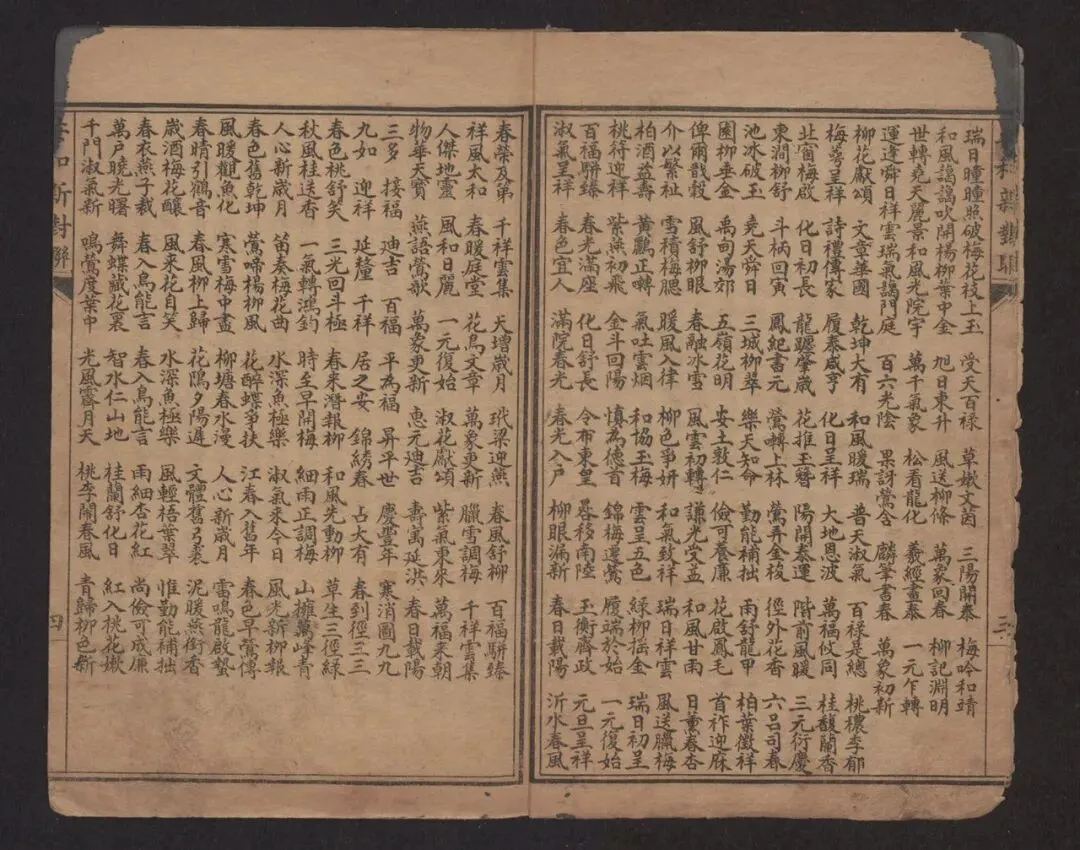 和新對聯 三
瑞日曈曈照破梅花枝上玉 受天百祿 草媺文茵 三陽開泰 梅吟和靖
和風謁謁吹開楊柳葉中金 旭日東升 風送柳條 萬象回春 柳記淵明
世轉堯天麗景和風光院宇 萬千氣象 松看龍化 羲經畫泰 一元乍轉
運逢舜日祥雲瑞氣藹門庭 百六光陰 果訝鶯含 麟筆書春 萬象初新
柳花獻頌 文章華國 乾坤大有 和風暖瑞 普天淑氣 百祿是總 桃穠李郁
梅萼呈祥 詩禮傳家 履泰咸亨 化日呈祥 大地恩波 萬福攸同 桂馥蘭香
北窗梅啟 化日初長 龍躔肇歲 花推玉簪 陽開泰運 階前風暖 三元衍慶
東澗柳舒 斗柄回寅 鳳紀書元 鶯轉上林 鶯弄金梭 徑外花香 六呂司春
池冰破玉 堯天舜日 三城柳翠 樂天知命 勤能補拙 雨舒龍甲 柏葉徵祥
園柳垂金 禹甸湯郊 五嶺花明 安土敦仁 儉可養廉 花啟鳳毛 首祚迎庥
俾爾戩穀 風舒柳眼 春融冰雪 風雲初轉 謙光受益 和風甘雨 日薰春杏
介以繁祉 雪積梅腮 暖風入律 柳色爭妍 和氣致祥 瑞日祥雲 風送臘梅
柏酒益壽 黃鸝正轉 氣吐雲烟 和協玉梅 雲呈五色 綠柳搖金 瑞日初呈
桃符迎祥 紫燕初飛 金斗回陽 慎為德首 錦梅遷鶯 履端於始 一元復始
百福駢臻 春光滿座 化日舒長 令布東皇 晷移南陸 玉衡齊政 元旦呈祥
淑氣呈祥 春色宜人 滿院春光 春光入戶 柳眼漏新 春日載陽 沂水春風
春榮及第 千祥雲集 天增歲月 玳梁迎燕 春風舒柳 百福駢臻
祥風太和 春暖庭堂 花鳥文章 萬象更新 臘雪調梅 千祥雲集
人傑地靈 風和日麗 一元復始 淑花獻頌 紫氣東來 萬福來朝
物華天寶 燕語鶯歌 萬象更新 惠元迪吉 壽寓延洪 春日載陽
三多 接福 迪吉 百福 平為福 昇平世 慶豐年 寒消圖九九
九如 迎祥 延釐 千祥 居之安 錦綉春 占大有 春到徑三三
春色桃舒笑 三光回斗極 春來潛報柳 和風先動柳 草生三徑綠
秋風桂送香 一氣轉鴻鈞 時至早開梅 細雨正調梅 山擁萬峰青
人心新歲月 笛奏梅花曲 水深魚極樂 淑氣來今日 風光新柳報
春色舊乾坤 鶯啼楊柳風 花醉蝶爭扶 江春入舊年 春色早鶯傳
風暖觀魚化 寒雪梅中盡 柳塘春水漫 人心新歲月 雷鳴龍啟蟄
春晴引鶴音 春風柳上歸 花隖夕陽遲 文體舊弓裘 泥暖燕銜香
歲酒梅花釀 風來花自笑 水深魚極樂 風輕梧葉翠 惟勤能補拙
春衣燕子裁 春入鳥能言 春入鳥能言 雨細杏花紅 尚儉可成廉
萬戶曉光曙 舞蝶藏花裏 智水仁山地 桂蘭舒化日 紅入桃花嫩
千門淑氣新 鳴鶯度葉中 光風霽月天 桃李鬧春風 青歸柳色新
和新對聯 四